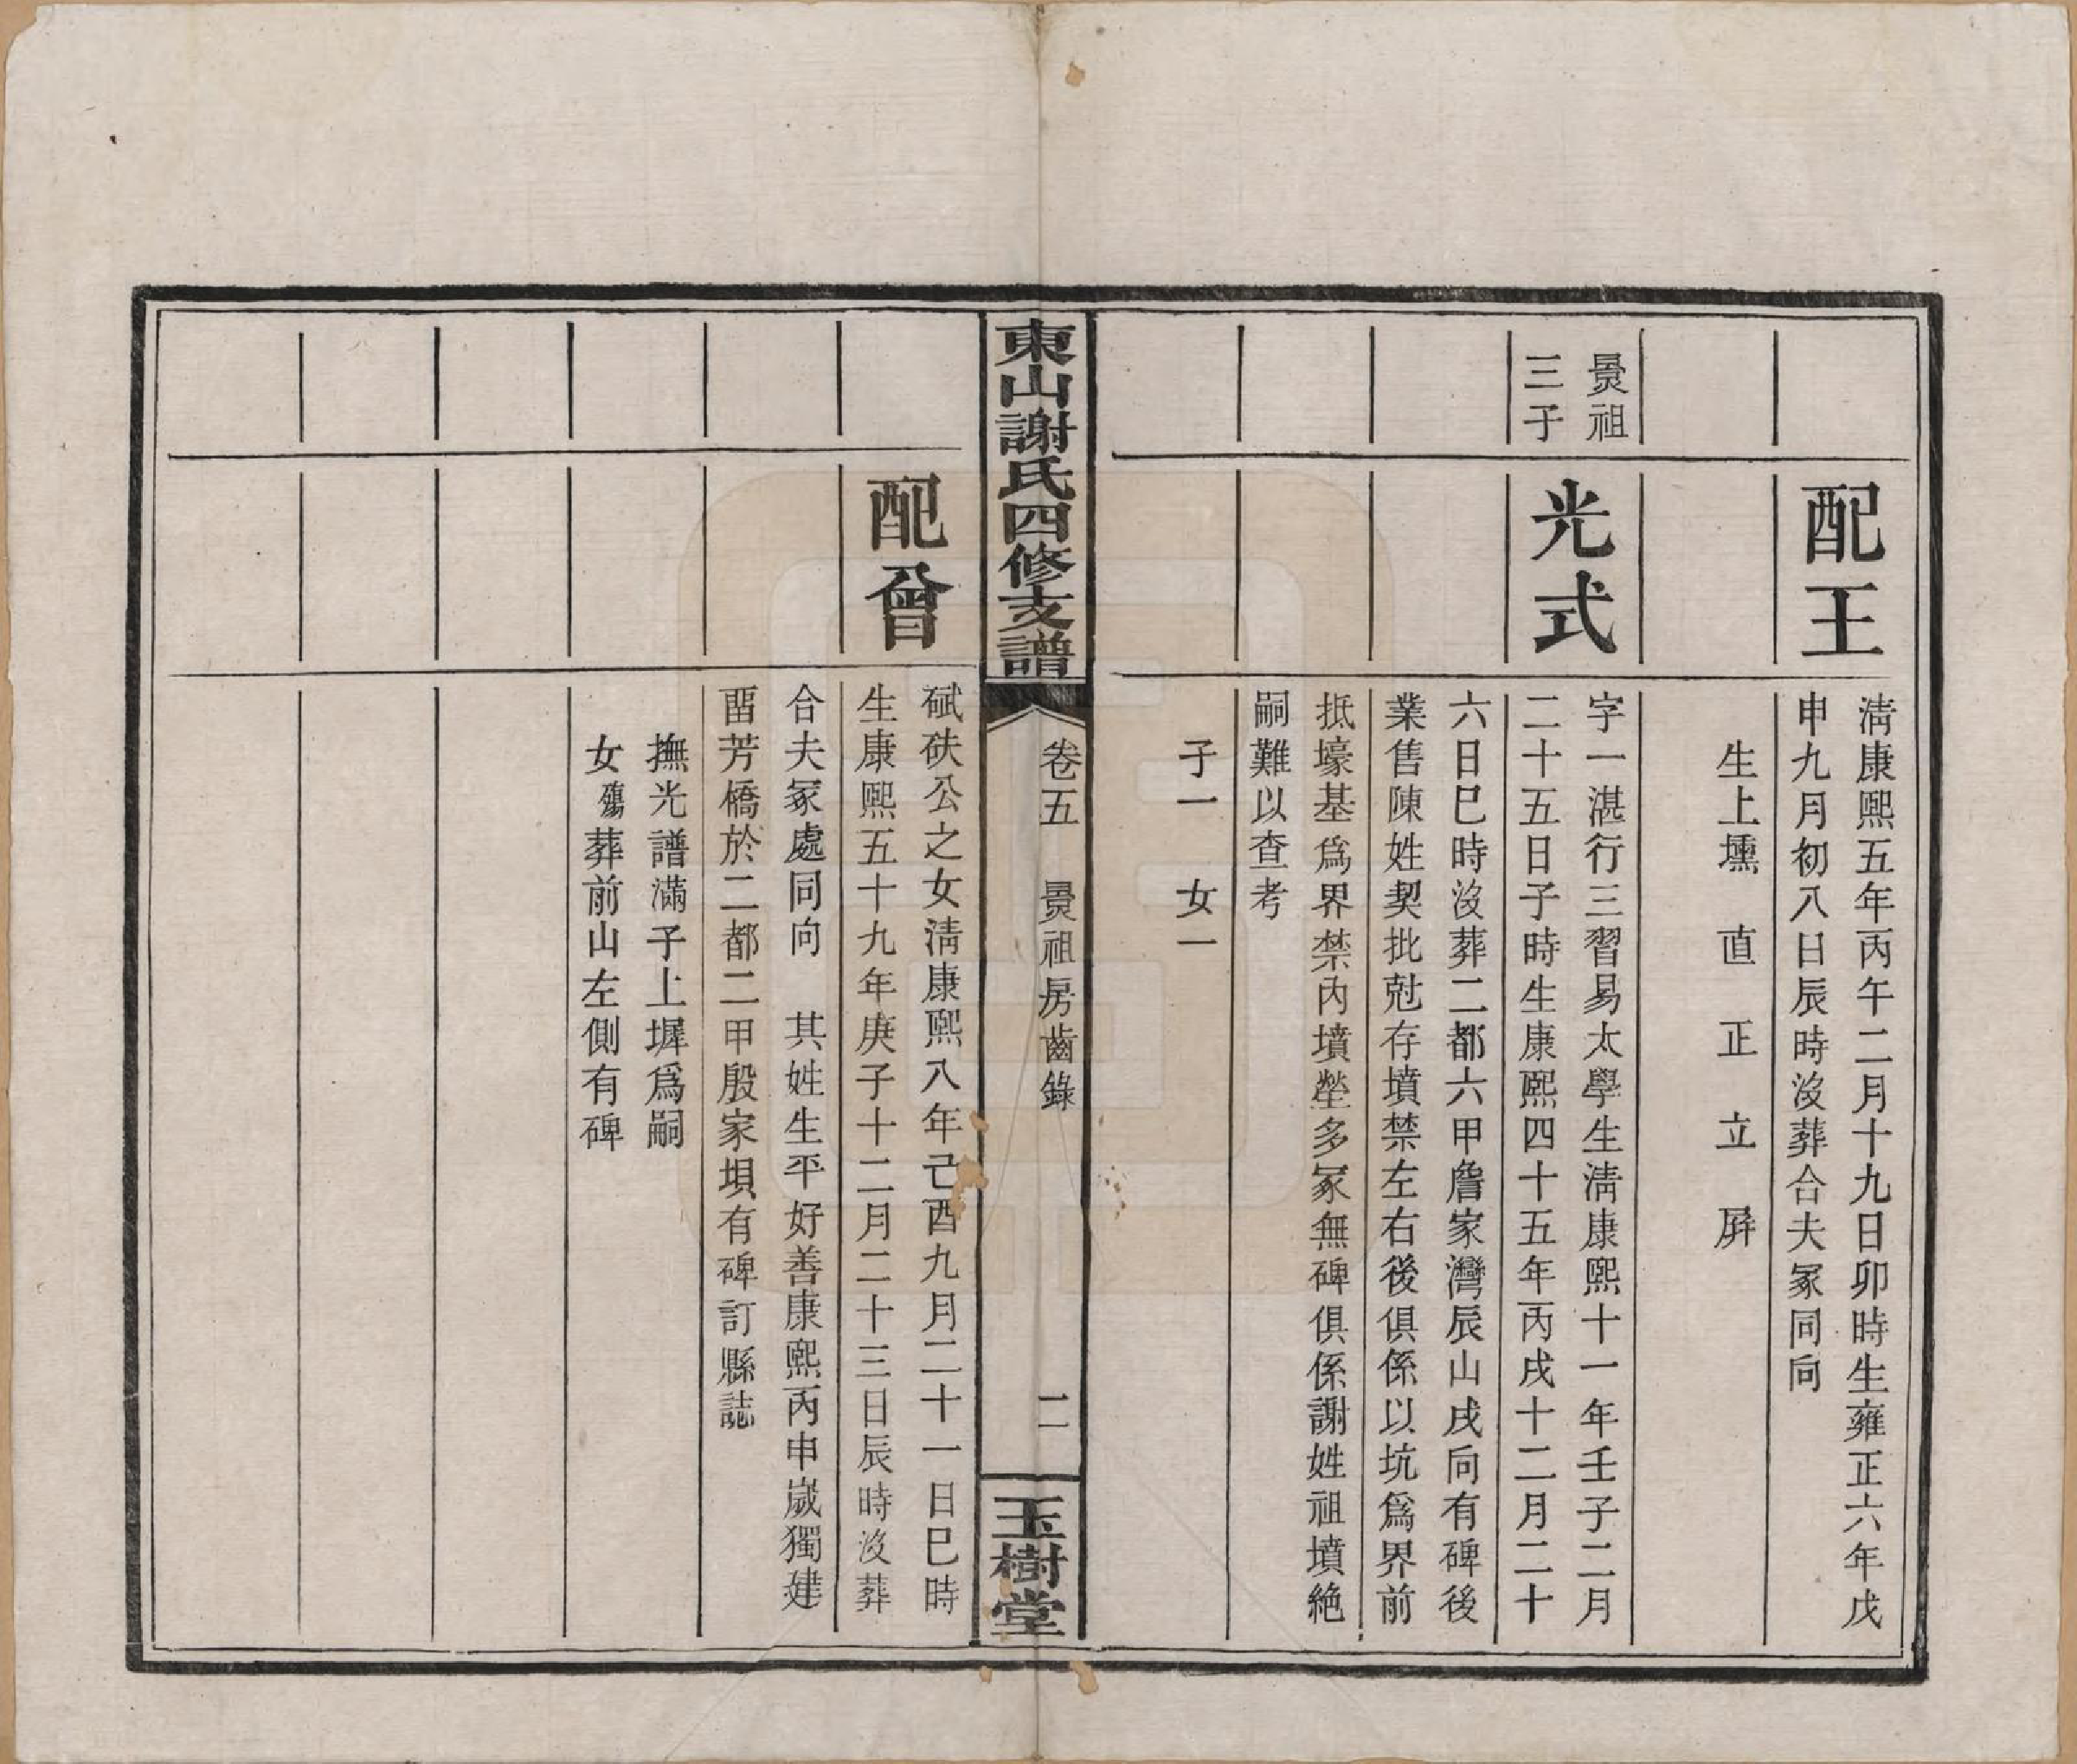 配王
清康熙五年丙午二月十九日卯時生雍正六年戊
申九月初八日辰時沒葬合夫冢同向
生上壎　直　正　立　屏
景祖
三子
光式
字一湛行三習易太學生清康熙十一年壬子二月
二十五日子時生康熙四十五年丙戌十二月二十
六日巳時沒葬二都六甲詹家灣辰山戌向有碑後
業售陳姓契批尅存墳禁左右後俱係以坑爲界前
抵壕基爲界禁內墳塋多冢無碑俱係謝姓祖墳絶
嗣難以查考
子一　女一
東山謝氏四修支譜
卷五　景祖房齒錄
二
玉樹堂
配曾
碔砆公之女清康熙八年己酉九月二十一日巳時
生康熙五十九年庚子十二月二十三日辰時沒葬
合夫冢處同向　其姓生平好善康熙丙申歲獨建
畱芳橋於二都二甲殷家垻有碑訂縣誌
撫光譜滿子上墀爲嗣
女殤葬前山左側有碑